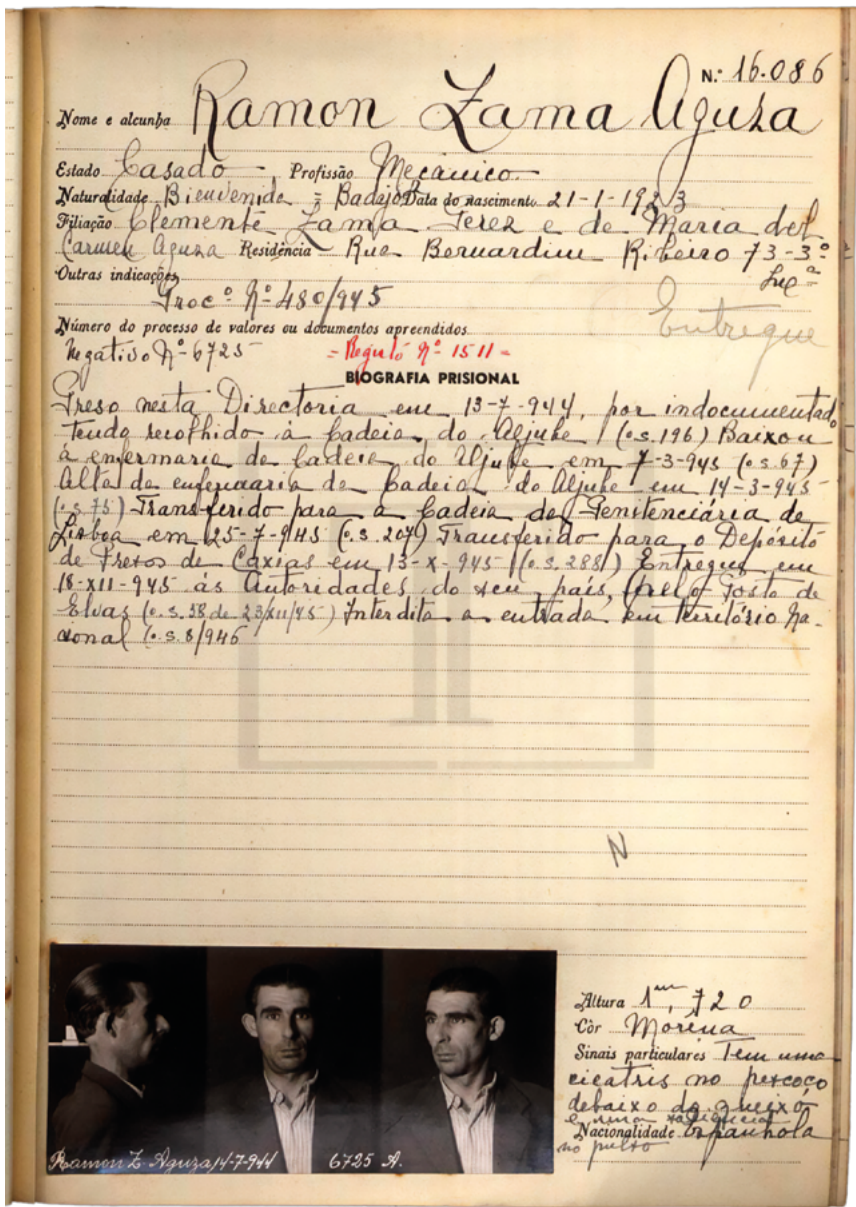 N.º 16.086
Nome e alcunha Ramon Zama Aguza
Estado Casado Profissão Mecânico
Naturalidade Bienvenida = Badajoz Data do nascimento 21-1-1923
Filiação Clemente Zama Perez e de Maria del
Carmen Aguza Residência Rua Bernardim Ribeiro 73-3º
Outras indicações
Procº Nº 480/945
Entregue
Número do processo de valores ou documentos apreendidos
Negativo Nº 6725 = Registo Nº 1511 =
BIOGRAFIA PRISIONAL
Preso nesta Directoria em 13-7-944, por indocumentado
tendo recolhido à Cadeia do Aljube (o.s.196) Baixou
à enfermaria da Cadeia do Aljube em 7-3-945 (o.s.67)
Alta da enfermaria da Cadeia do Aljube em 14-3-945
(o.s.75) Transferido para a Cadeia da Penitenciária de
Lisboa em 25-7-945 (o.s.207) Transferido para o Depósito
de Presos de Caxias em 13-X-945 (o.s.288) Entregue em
18-XII-945 às Autoridades do seu país, pelo Posto de
Elvas (o.s.38 de 23/XII/45) Interdita a entrada em território Na-
cional (o.s.8/946
N
Altura 1m,720
Côr Morena
Sinais particulares Tem uma
cicatris no pescoço
debaixo do queixo
e uma no pulso
Nacionalidade Espanhola
Ramon Z. Aguza 14-7-944 6725 A.